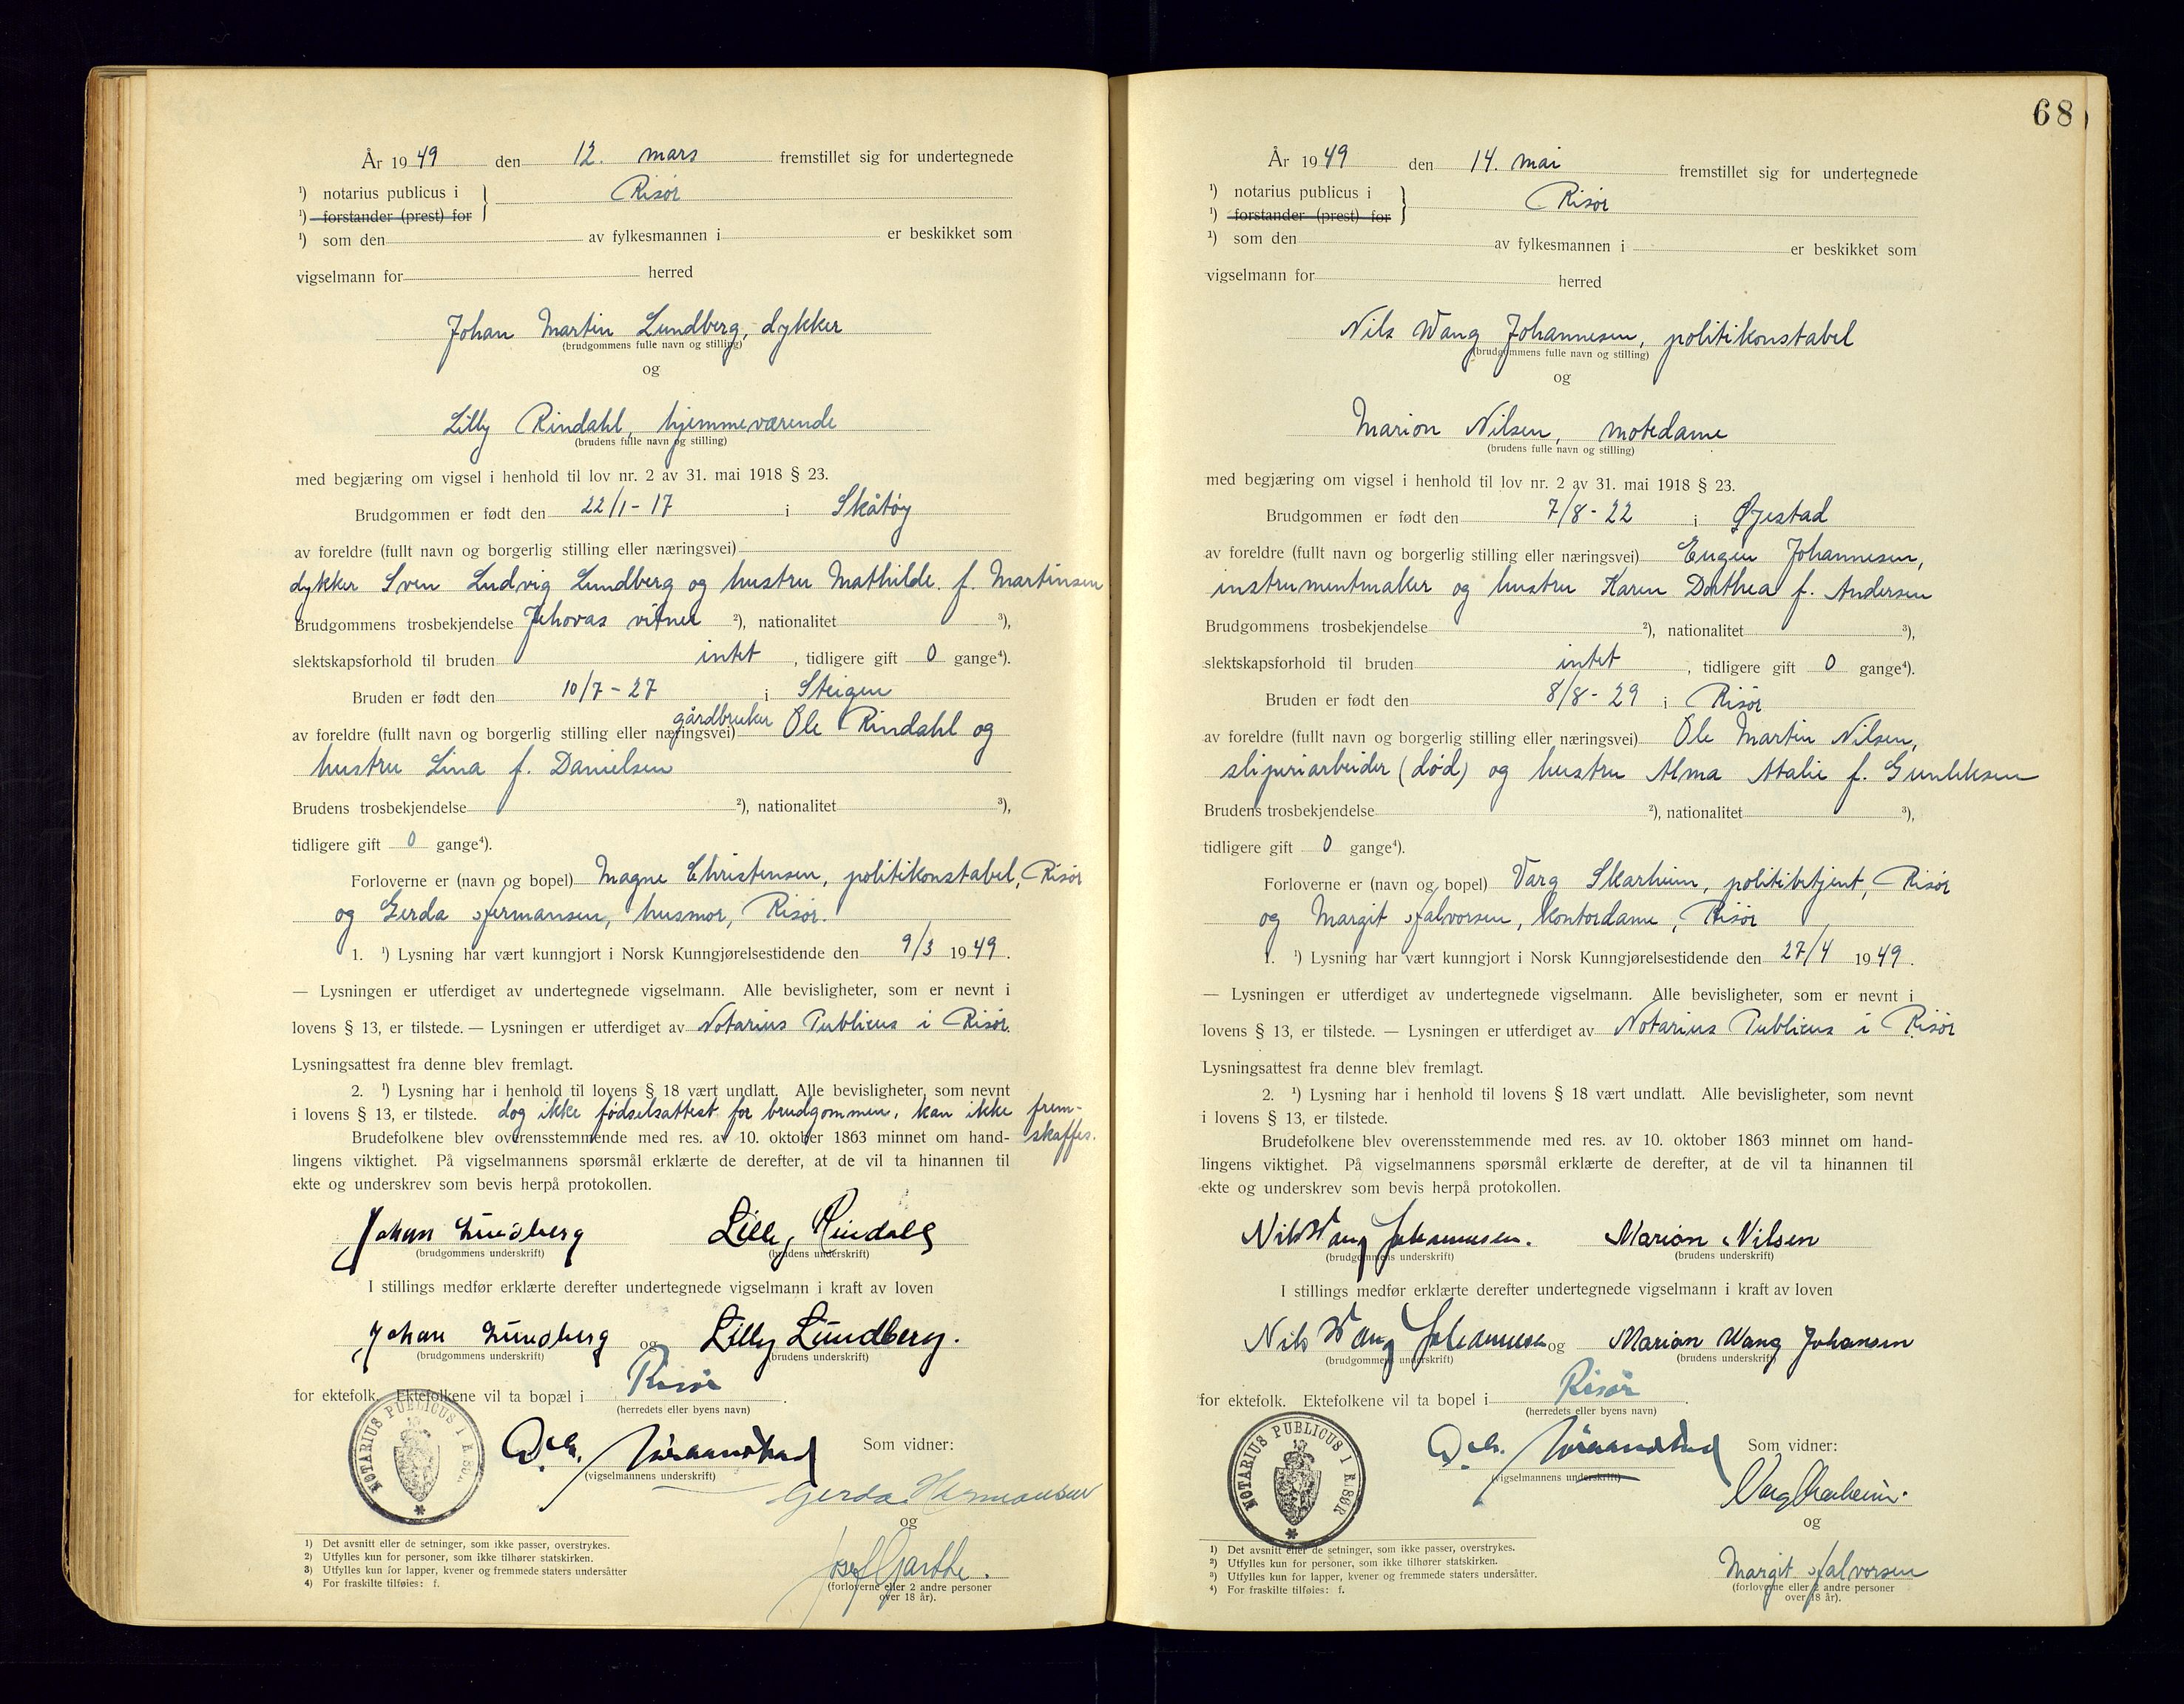 År 1949 den 12. mars fremstillet sig for undertegnede
¹) notarius publicus i } Risør
¹) forstander (prest) for
¹) som den av fylkesmannen i er beskikket som
vigselmann for herred
Johan Martin Lundberg, dykker
(brudgommens fulle navn og stilling)
og
Lilly Rindahl, hjemmeværende
(brudens fulle navn og stilling)
med begjæring om vigsel i henhold til lov nr. 2 av 31. mai 1918 § 23.
Brudgommen er født den 22/1-17 i Skåtøy
av foreldre (fullt navn og borgerlig stilling eller næringsvei)
dykker Sven Ludvig Lundberg og hustru Mathilde f. Martinsen
Brudgommens trosbekjendelse Jehovas vitner ²), nationalitet ³),
slektskapsforhold til bruden intet , tidligere gift 0 gange⁴).
Bruden er født den 10/7-27 i Steigen
av foreldre (fullt navn og borgerlig stilling eller næringsvei) gårdbruker Ole Rindahl og
hustru Lina f. Danielsen
Brudens trosbekjendelse ²), nationalitet ³),
tidligere gift 0 gange⁴).
Forloverne er (navn og bopel) Magne Christensen, politikonstabel, Risør
og Gerda Hermansen, husmor, Risør.
1. ¹) Lysning har vært kunngjort i Norsk Kunngjørelsestidende den 9/3 1949.
— Lysningen er utferdiget av undertegnede vigselmann. Alle bevisligheter, som er nevnt i
lovens § 13, er tilstede. — Lysningen er utferdiget av Notarius Publicus i Risør.
Lysningsattest fra denne blev fremlagt.
2. ¹) Lysning har i henhold til lovens § 18 vært undlatt. Alle bevisligheter, som nevnt
i lovens § 13, er tilstede. dog ikke fødselsattest for brudgommen, kan ikke frem-
skaffes.
Brudefolkene blev overensstemmende med res. av 10. oktober 1863 minnet om hand-
lingens viktighet. På vigselmannens spørsmål erklærte de derefter, at de vil ta hinannen til
ekte og underskrev som bevis herpå protokollen.
Johan Lundberg Lilly Rindahl
(brudgommens underskrift) (brudens underskrift)
I stillings medfør erklærte derefter undertegnede vigselmann i kraft av loven
Johan Lundberg og Lilly Lundberg.
(brudgommens underskrift) (brudens underskrift)
for ektefolk. Ektefolkene vil ta bopæl i Risør.
(herredets eller byens navn)
NOTARIUS PUBLICUS I RISØR
Som vidner:
(vigselmannens underskrift)
Gerda Hermansen
og
Josef Garthe.
(forloverne eller 2 andre personer
over 18 år).
1) Det avsnitt eller de setninger, som ikke passer, overstrykes.
2) Utfylles kun for personer, som ikke tilhører statskirken.
3) Utfylles kun for lapper, kvener og fremmede staters undersåtter
4) For fraskilte tilføies: f.
68
År 1949 den 14. mai fremstillet sig for undertegnede
¹) notarius publicus i } Risør
¹) forstander (prest) for
¹) som den av fylkesmannen i er beskikket som
vigselmann for herred
Nils Wang Johannesen, politikonstabel
(brudgommens fulle navn og stilling)
og
Marion Nilsen, motedame
(brudens fulle navn og stilling)
med begjæring om vigsel i henhold til lov nr. 2 av 31. mai 1918 § 23.
Brudgommen er født den 7/8-22 i Øjestad
av foreldre (fullt navn og borgerlig stilling eller næringsvei) Eugen Johannesen,
instrumentmaker og hustru Karen Dorthea f. Andersen
Brudgommens trosbekjendelse ²), nationalitet ³),
slektskapsforhold til bruden intet , tidligere gift 0 gange⁴).
Bruden er født den 8/8-29 i Risør
av foreldre (fullt navn og borgerlig stilling eller næringsvei) Ole Martin Nilsen,
sliperiarbeider (død) og hustru Alma Atalie f. Gunleksen
Brudens trosbekjendelse ²), nationalitet ³),
tidligere gift 0 gange⁴).
Forloverne er (navn og bopel) Varg Skarheim, politibetjent, Risør
og Margit Halvorsen, kontordame, Risør
1. ¹) Lysning har vært kunngjort i Norsk Kunngjørelsestidende den 27/4 1949.
— Lysningen er utferdiget av undertegnede vigselmann. Alle bevisligheter, som er nevnt i
lovens § 13, er tilstede. — Lysningen er utferdiget av Notarius Publicus i Risør
Lysningsattest fra denne blev fremlagt.
2. ¹) Lysning har i henhold til lovens § 18 vært undlatt. Alle bevisligheter, som nevnt
i lovens § 13, er tilstede.
Brudefolkene blev overensstemmende med res. av 10. oktober 1863 minnet om hand-
lingens viktighet. På vigselmannens spørsmål erklærte de derefter, at de vil ta hinannen til
ekte og underskrev som bevis herpå protokollen.
Nils Wang Johannesen. Marion Nilsen
(brudgommens underskrift) (brudens underskrift)
I stillings medfør erklærte derefter undertegnede vigselmann i kraft av loven
Nils Wang Johannesen og Marion Wang Johansen
(brudgommens underskrift) (brudens underskrift)
for ektefolk. Ektefolkene vil ta bopel i Risør.
(herredets eller byens navn)
NOTARIUS PUBLICUS I RISØR
Som vidner:
(vigselmannens underskrift)
Varg Skarheim.
og
Margit Halvorsen
(forloverne eller 2 andre personer
over 18 år).
1) Det avsnitt eller de setninger, som ikke passer, overstrykes.
²) Utfylles kun for personer, som ikke tilhører statskirken.
³) Utfylles kun for lapper, kvener og fremmede staters undersåtter.
⁴) For fraskilte tilføies: f.